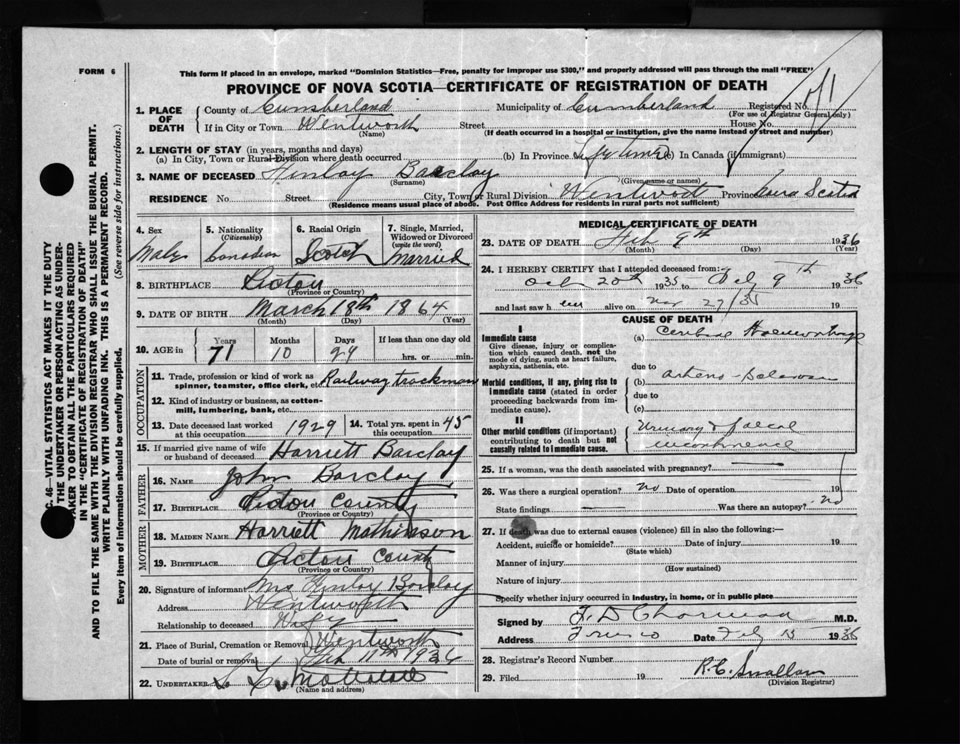 FORM 6
This form if placed in an envelope, marked "Dominion Statistics—Free, penalty for improper use $300," and properly addressed will pass through the mail "FREE"
PROVINCE OF NOVA SCOTIA—CERTIFICATE OF REGISTRATION OF DEATH
1. PLACE OF DEATH County of Cumberland Municipality of Cumberland Registered No.
(For use of Registrar General only)
If in City or Town Wentworth Street House No.
(Name) (If death occurred in a hospital or institution, give the name instead of street and number)
2. LENGTH OF STAY (in years, months and days)
(a) In City, Town or Rural Division where death occurred (b) In Province Life time (c) In Canada (if immigrant)
3. NAME OF DECEASED Finlay Barclay
(Surname) (Given name or names)
RESIDENCE No. Street City, Town or Rural Division Wentworth Province Nova Scotia
(Residence means usual place of abode. Post Office Address for residents in rural parts not sufficient)
4. Sex Male
5. Nationality (Citizenship) Canadian
6. Racial Origin Scotch
7. Single, Married, Widowed or Divorced (write the word) Married
8. BIRTHPLACE Pictou
(Province or Country)
9. DATE OF BIRTH March 18th 1864
(Month) (Day) (Year)
10. AGE in Years 71 Months 10 Days If less than one day old hrs. or min.
OCCUPATION
11. Trade, profession or kind of work as spinner, teamster, office clerk, etc. Railway trackman
12. Kind of industry or business, as cotton-mill, lumbering, bank, etc.
13. Date deceased last worked at this occupation 1929 14. Total yrs. spent in this occupation 45
15. If married give name of wife or husband of deceased Harriett Barclay
FATHER
16. NAME John Barclay
17. BIRTHPLACE Pictou County
(Province or Country)
MOTHER
18. MAIDEN NAME Harriett Mathinson
19. BIRTHPLACE Pictou County
(Province or Country)
20. Signature of informant Mrs Finlay Barclay
Address Wentworth
Relationship to deceased Wife
21. Place of Burial, Cremation or Removal Wentworth
Date of burial or removal Feb 11th 1936
22. UNDERTAKER
(Name and address)
MEDICAL CERTIFICATE OF DEATH
23. DATE OF DEATH Feb 9th 1936
(Month) (Day) (Year)
24. I HEREBY CERTIFY that I attended deceased from:
Oct 20th 1935 to Feby 9th 1936
and last saw h im alive on Nov 27/35 19
CAUSE OF DEATH
I
Immediate cause
Give disease, injury or complication which caused death, not the mode of dying, such as heart failure, asphyxia, asthenia, etc.
(a) Cerebral Haemorrhage
due to
Morbid conditions, if any, giving rise to immediate cause (stated in order proceeding backwards from immediate cause).
(b) Arterio-Sclerosis
due to
(c)
II
Other morbid conditions (if important) contributing to death but not causally related to immediate cause.
Urinary & faecal
incontinence
25. If a woman, was the death associated with pregnancy?
26. Was there a surgical operation? no Date of operation 19
State findings Was there an autopsy? no
27. If death was due to external causes (violence) fill in also the following:—
Accident, suicide or homicide? Date of injury 19
(State which)
Manner of injury
(How sustained)
Nature of injury
Specify whether injury occurred in industry, in home, or in public place
Signed by M.D.
Address Truro Date Feby 13 1936
28. Registrar's Record Number
29. Filed 19 R.C. Smallan
(Division Registrar)
C. 46—VITAL STATISTICS ACT MAKES IT THE DUTY
THE UNDERTAKER OR PERSON ACTING AS UNDERTAKER TO OBTAIN ALL THE PARTICULARS REQUIRED
IN THE "CERTIFICATE OF REGISTRATION OF DEATH"
AND TO FILE THE SAME WITH THE DIVISION REGISTRAR WHO SHALL ISSUE THE BURIAL PERMIT.
WRITE PLAINLY WITH UNFADING INK. THIS IS A PERMANENT RECORD.
Every item of information should be carefully supplied. (See reverse side for instructions.)